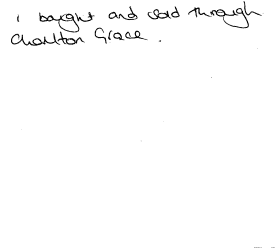 I bought and sold through
Charlton Grace.